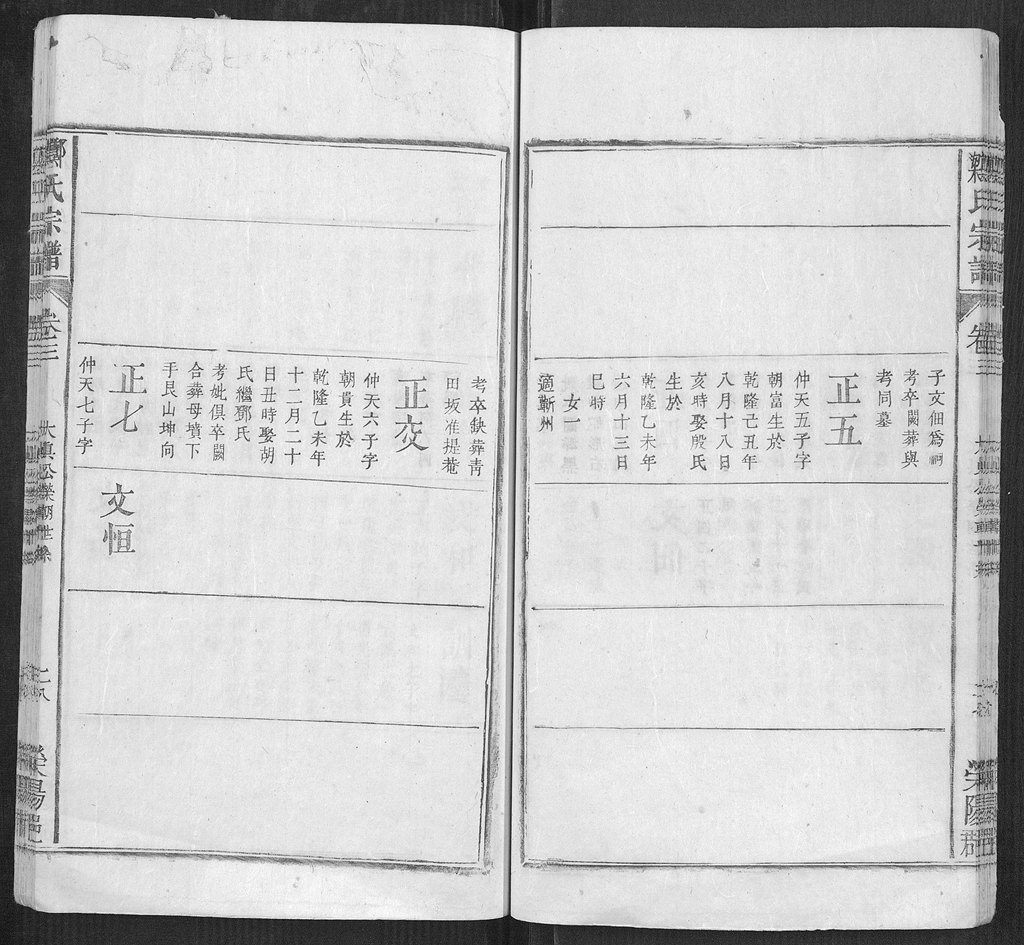 氏宗譜
子文佃爲嗣
考卒闕葬與
考同墓
正五
仲天五子字
朝富生於
乾隆亡丑年
八月十八日
亥時娶殷氏
生於
乾隆乙未年
六月十三日
巳時
女一
適蘄州
滎陽郡
考卒缺葬靑
田坂准提菴
正交
仲天六子字
朝貴生於
乾隆乙未年
十二月二十
日丑時娶胡
氏繼鄧氏
考妣俱卒闕
合葬母墳下
手艮山坤向
正七
文恒
仲天七子字
鄭氏宗譜
卷三
大眞公榮朝世系
二八
滎陽郡